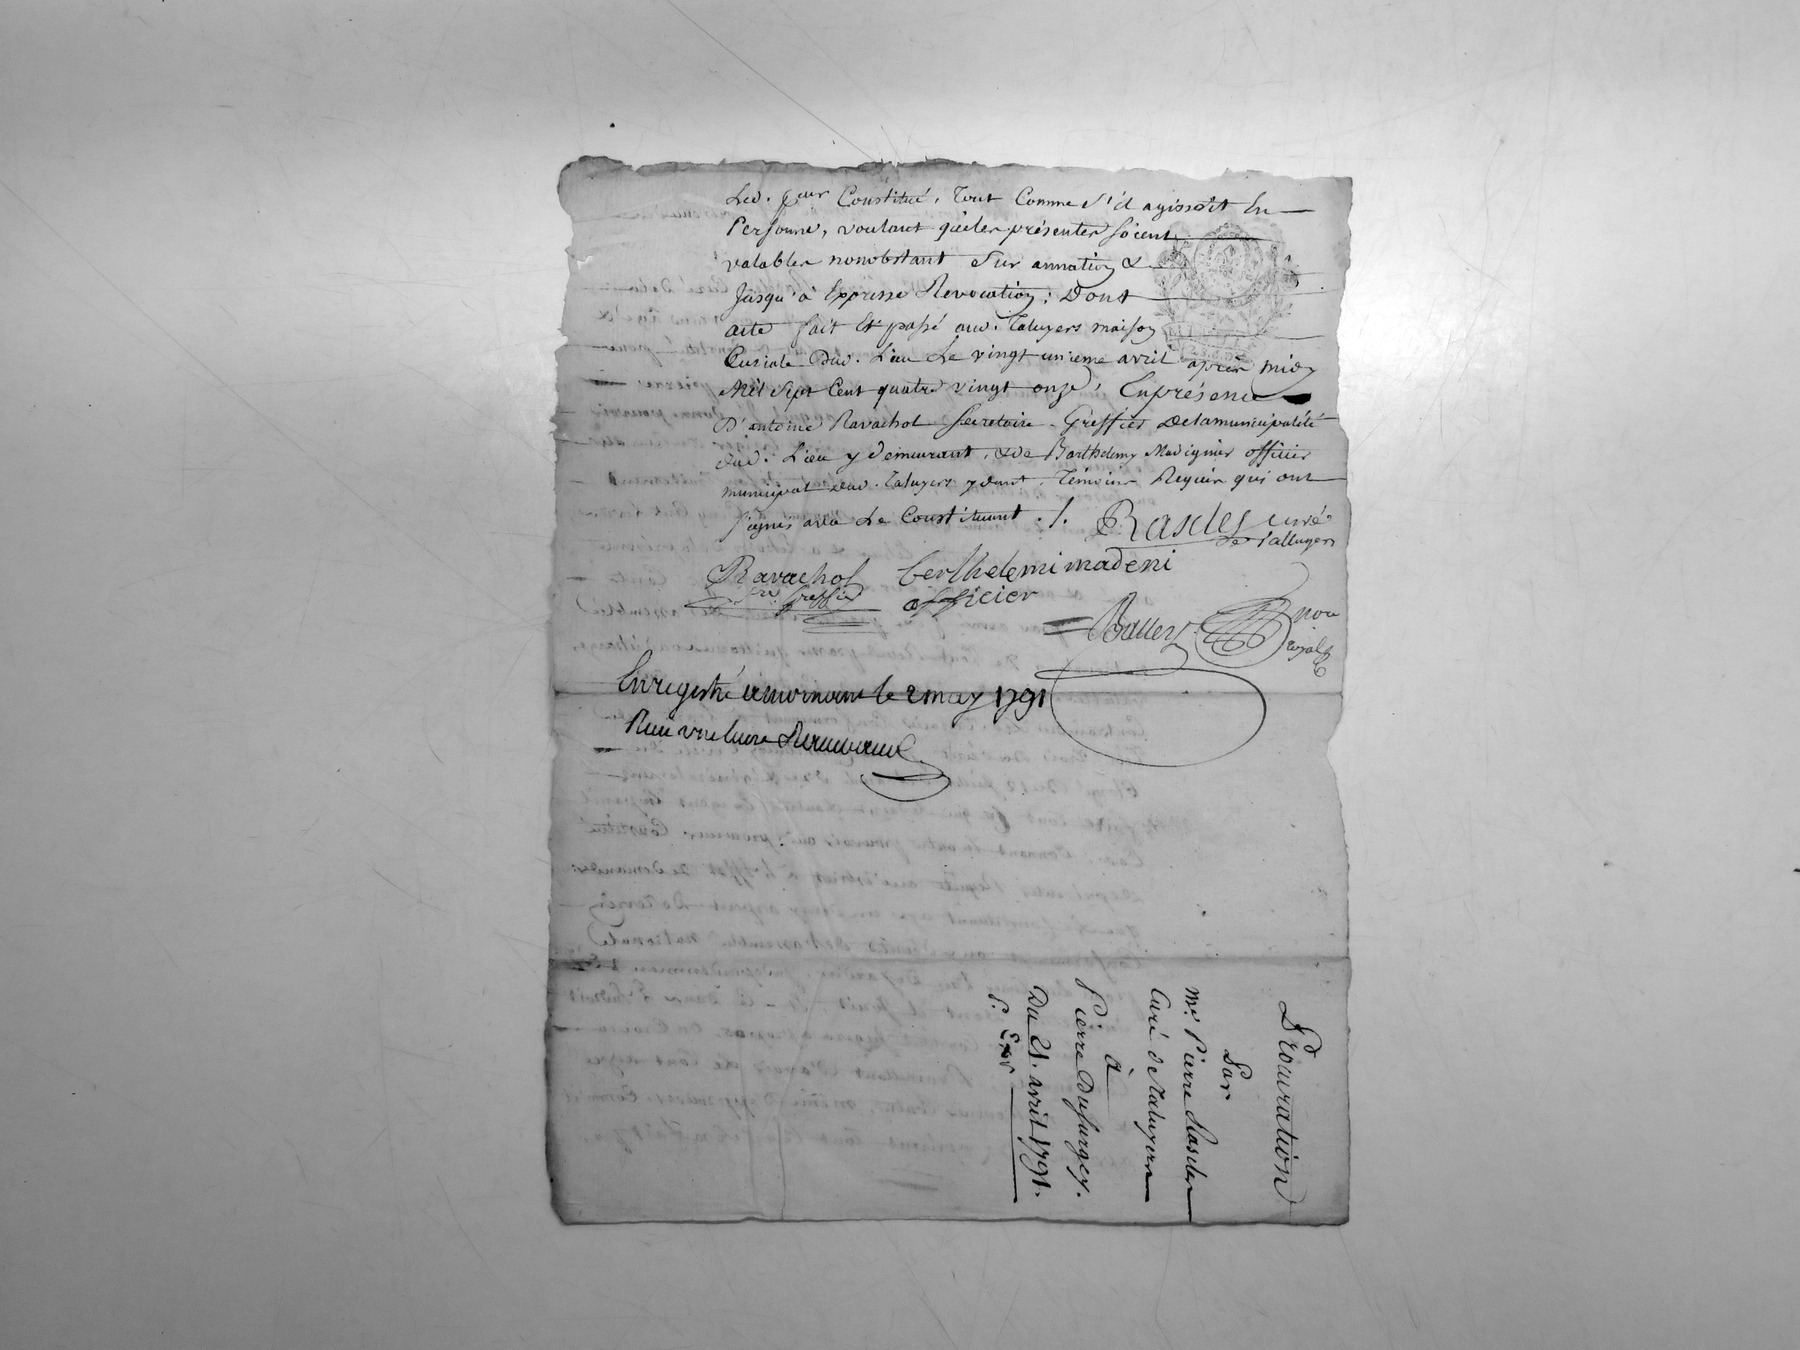 Led. pcur Constitué, Tout Comme S'il agissoit En
Personne, voulant quéler présenter soient
valabler nonobstant Sur annation &
Jusqu'a Expresse Revocation; Dont
acte fait Et passé aud. Taluyers maison
Curiale Dud. Lieu Le vingt unieme avril après midy
Mil Sept Cent quatre vingt onze, En présence
D'antoine Ravachol Secretaire Greffier Delamunicipalité
dud. Lieu y demeurant, & de Barthelemy Madignier officier
municipal dud. Taluyers y demt. Témoins Requis qui ont
signés avec Le Constituant ./.
Rascles curé
de talluyers
Ravachol
Sre. greffier
berthelemi madeni
officier
Ballery
nore
royal
Enregistré a mornant le 2 may 1791
Reçu une livre
Procuration
Par
Mre. Pierre Rascler
Curé de Taluyers
à
Pierre Dussurgey.
Du 21. avril 1791.
P. Expn